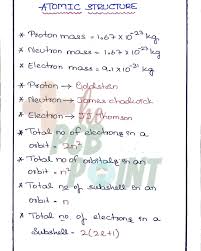 ATOMIC STRUCTURE
* Proton mass = 1.67 × 10⁻²³ kg
* Neutron mass = 1.67 × 10⁻²⁷ kg
* Electron mass = 9.1 × 10⁻³¹ kg
* Proton → Goldstein
* Neutron → James chadwick
* Electron → JJ Thomson
* Total no of electrons in a
orbit = 2n²
* Total no of orbitals in an
orbit = n²
* Total no of subshell in an
orbit = n
* Total no. of electrons in a
Subshell = 2(2l+1)
The
JOB
POINT